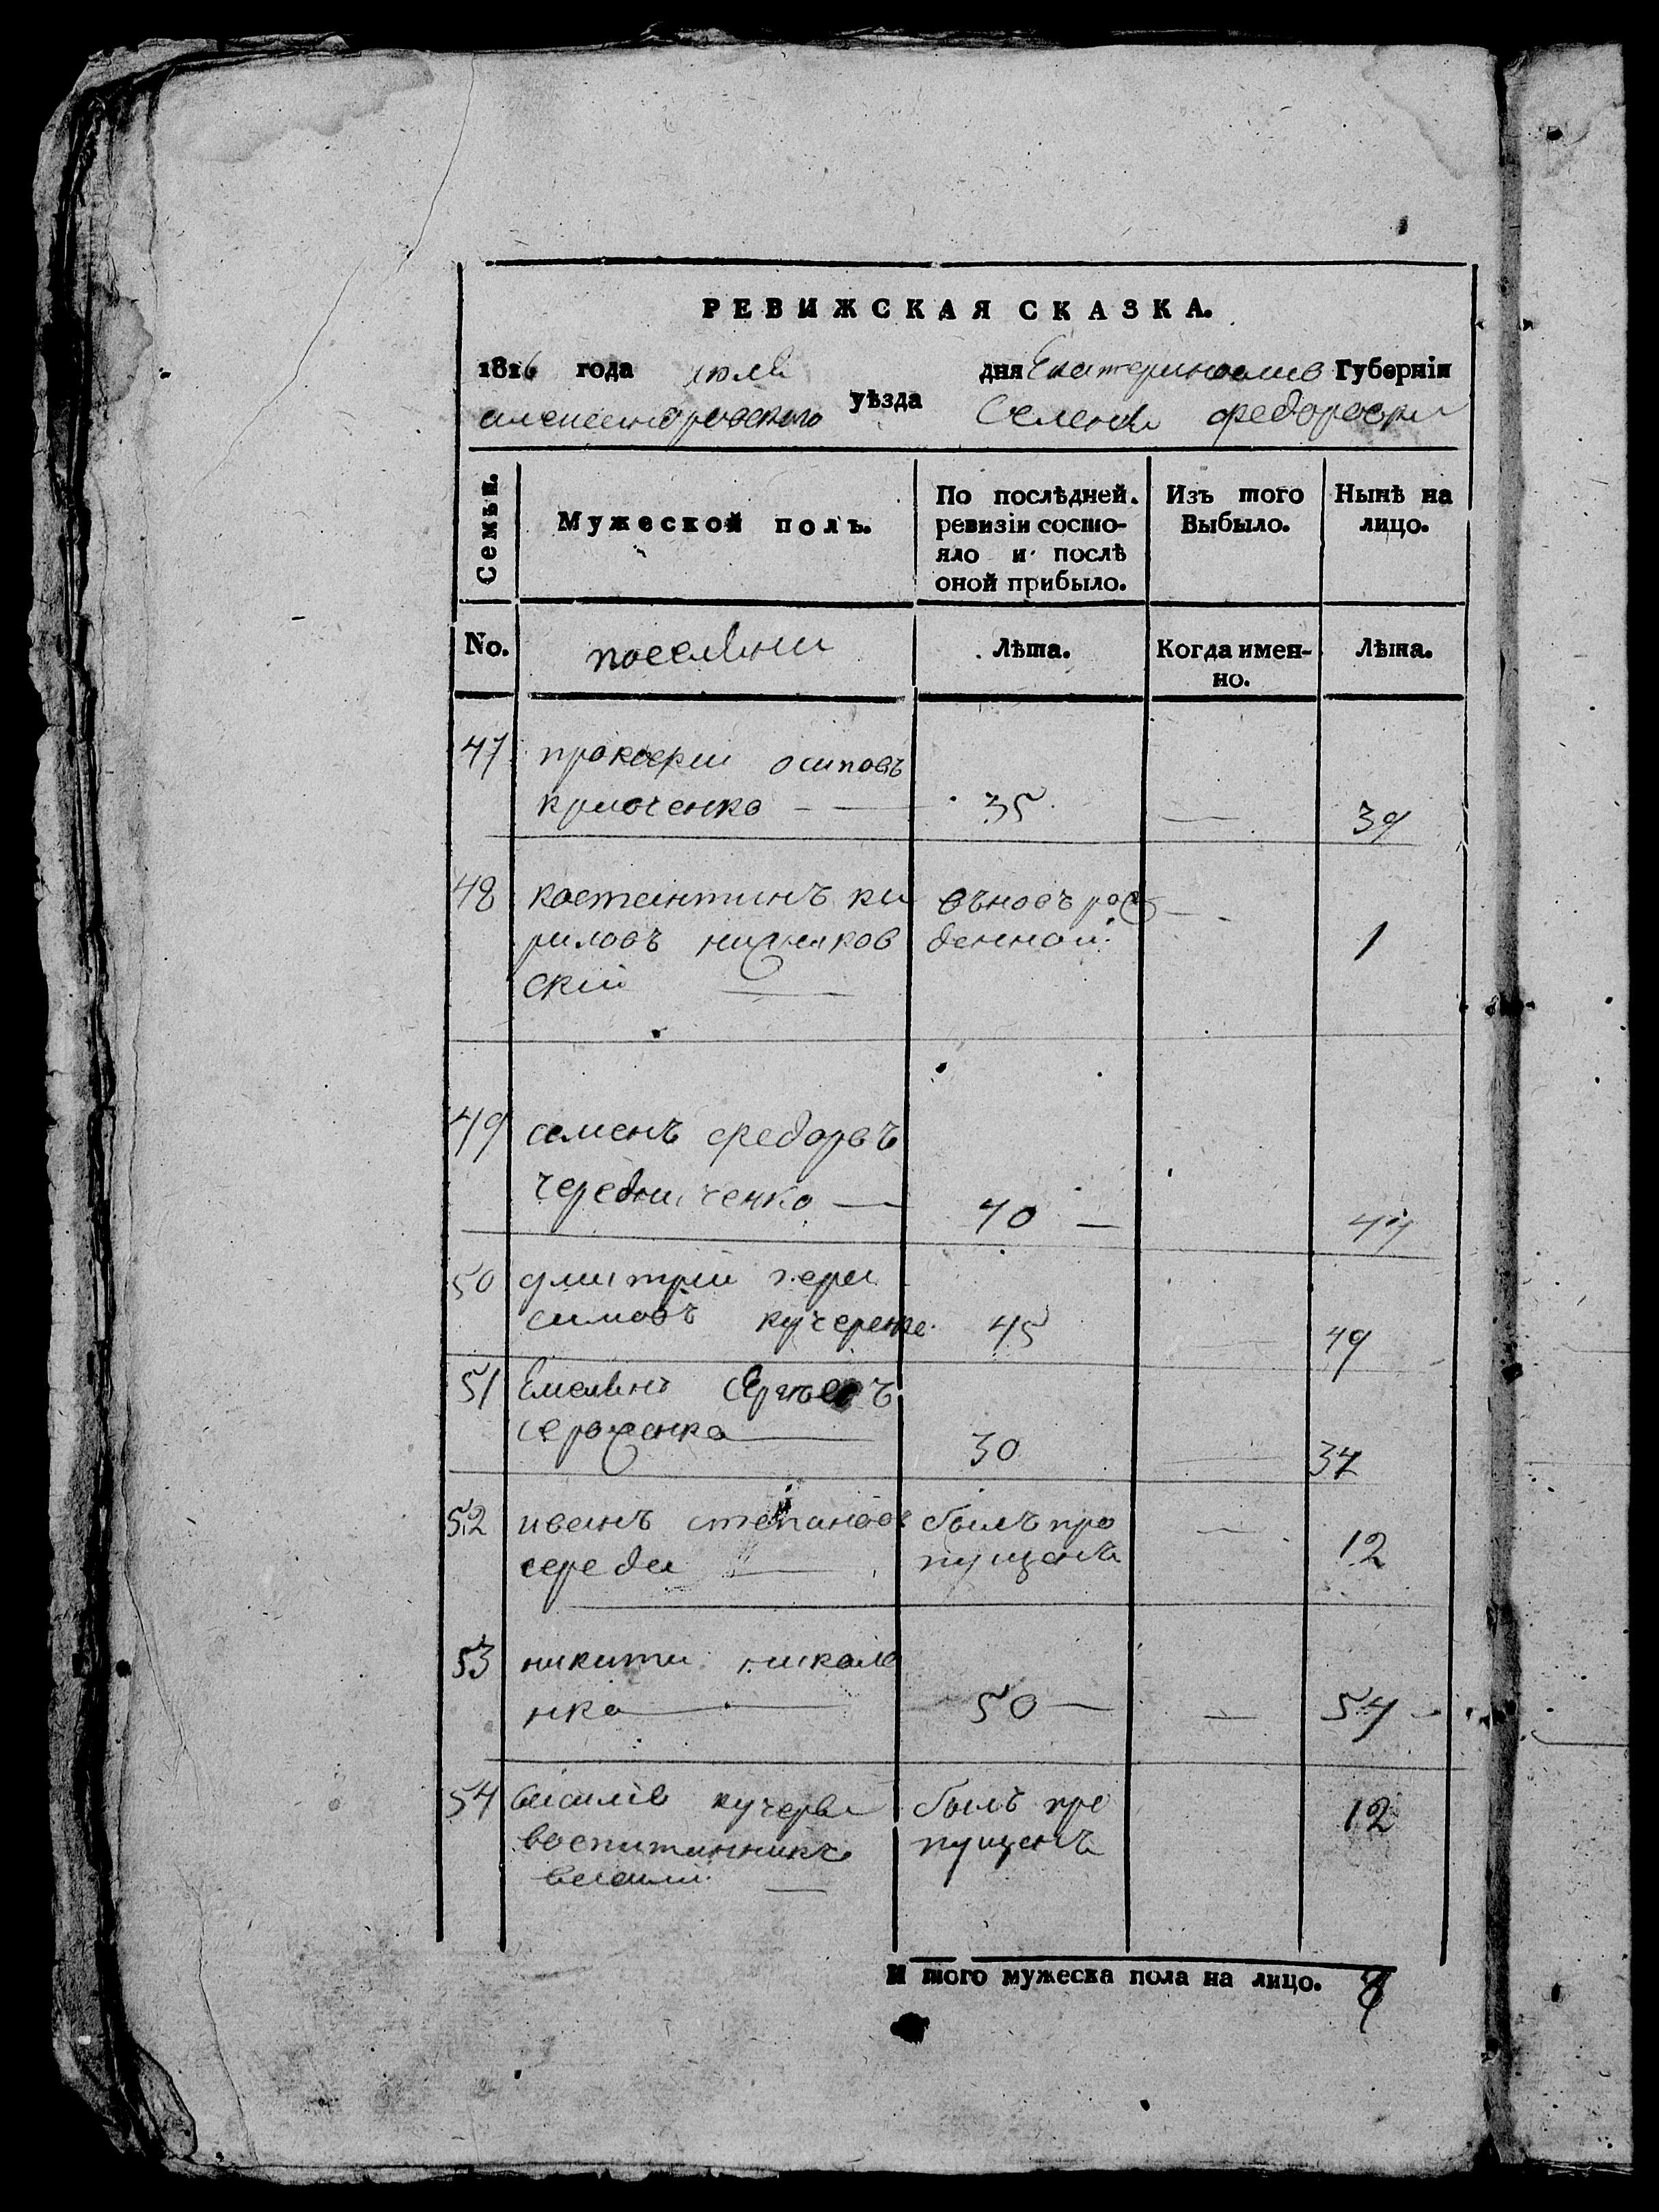 РЕВИЖСКАЯ СКАЗКА.
1816 года июля дня Екатеринослав Губерніи
александровского уѣзда Селения федоровки
Семьи.
Мужеской полъ.
По послѣдней ревизіи состояло и послѣ оной прибыло.
Изъ того Выбыло.
Нынѣ на лицо.
No.
поселяни
Лѣта.
Когда именно.
Лѣта.
47 прокофии осиповъ
крюченко — 35 — 39
48 костантинъ ки
риловъ
скіи
въновъ рож
денной — 1
49 семенъ федорвъ
чередниченко — 40 — 44
50 дмитрии гера
симовъ кучеренко 45 — 49
51 Емелянъ Сергѣевъ
30 — 34
52 иванъ степановъ былъ про — 12
середа — пущенъ
53 никита николае
нко — 50 — — 54
54 василя кучеря былъ про 12
воспитанникъ пущенъ
василии —
И того мужеска пола на лицо. 8